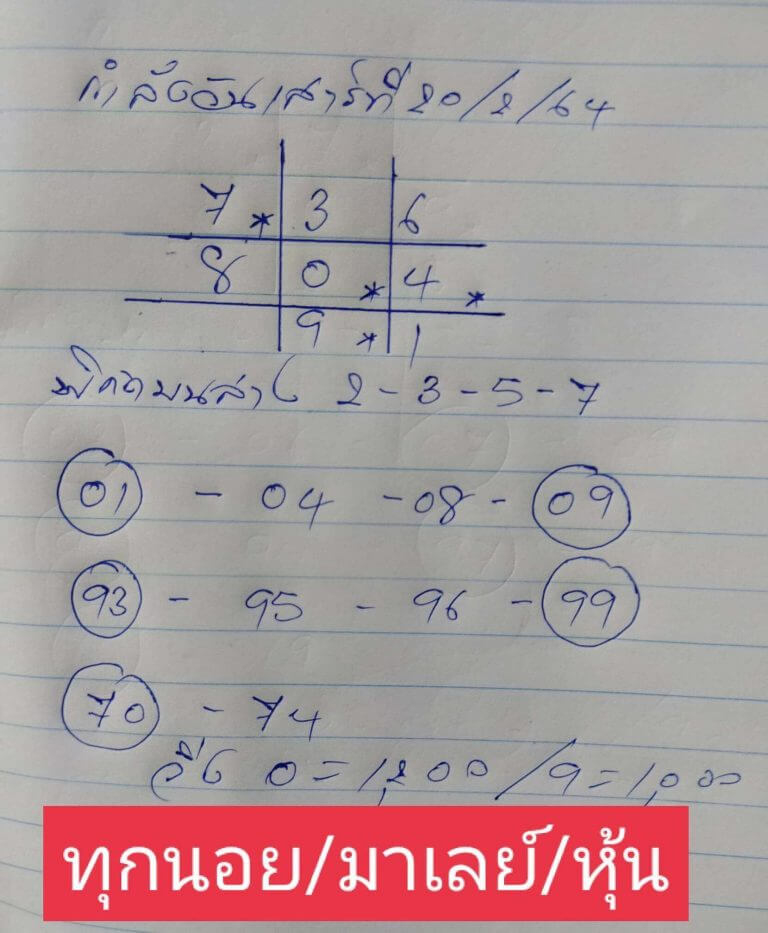 กำลังวันเสาร์ที่ 20/2/64
7* 3 6
8 0* 4*
9* 1
2-3-5-7
01 - 04 - 08 - 09
93 - 95 - 96 - 99
70 - 74
วิ่ง 0=1,200/9=1,000
ทุกนอย/มาเลย์/หุ้น